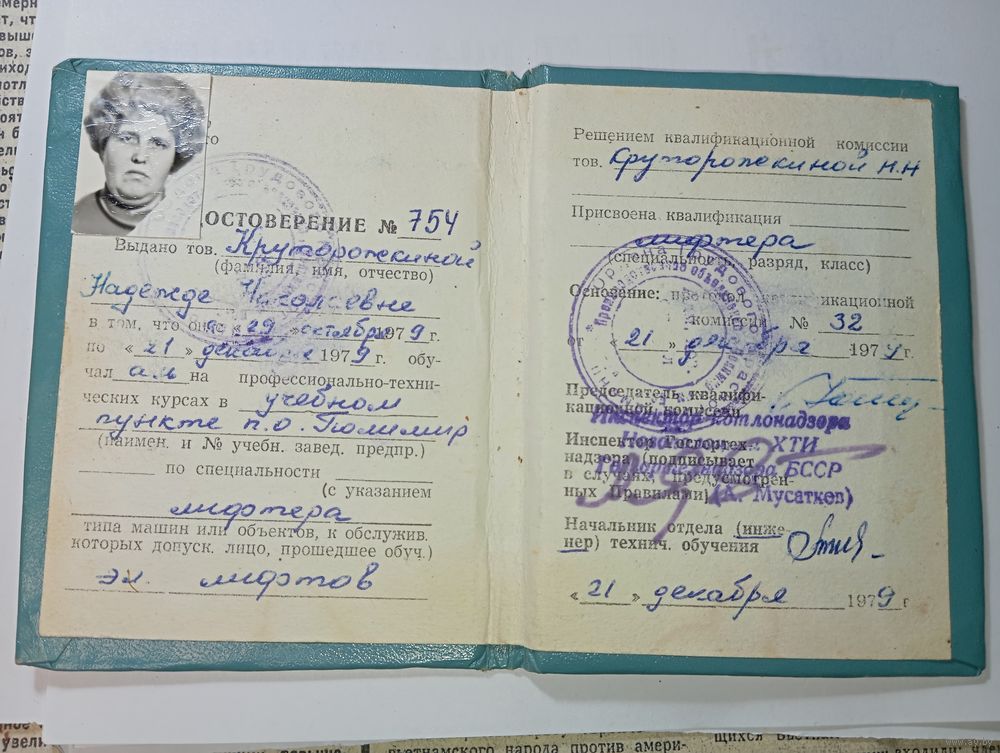 ОСТОВЕРЕНИЕ № 754
Выдано тов. Круторожкиной
(фамилия, имя, отчество)
Надежде Николаевне
в том, что он с «29» октября 1979 г.
по «21» декабря 1979 г. обу-
чал ась на профессионально-техни-
ческих курсах в учебном
пункте п.о. Полимир
(наимен. и № учебн. завед. предпр.)
по специальности
(с указанием
лифтера
типа машин или объектов, к обслужив.
которых допуск. лицо, прошедшее обуч.)
эл. лифтов
Решением квалификационной комиссии
тов. Круторожкиной Н.Н
Присвоена квалификация
лифтера
(специальность, разряд, класс)
Основание: протокол квалификационной
комиссии № 32
от «21» декабря 1979 г.
Председатель квалифи-
кационной комиссии
Инспектор котлонадзора
Инспектор Госгортех- ХТИ
надзора (подписывает
Госгортехнадзора БССР
в случаях, предусмотрен-
ных Правилами) (А. Мусатков)
Начальник отдела (инже-
нер) технич. обучения
«21» декабря 1979 г